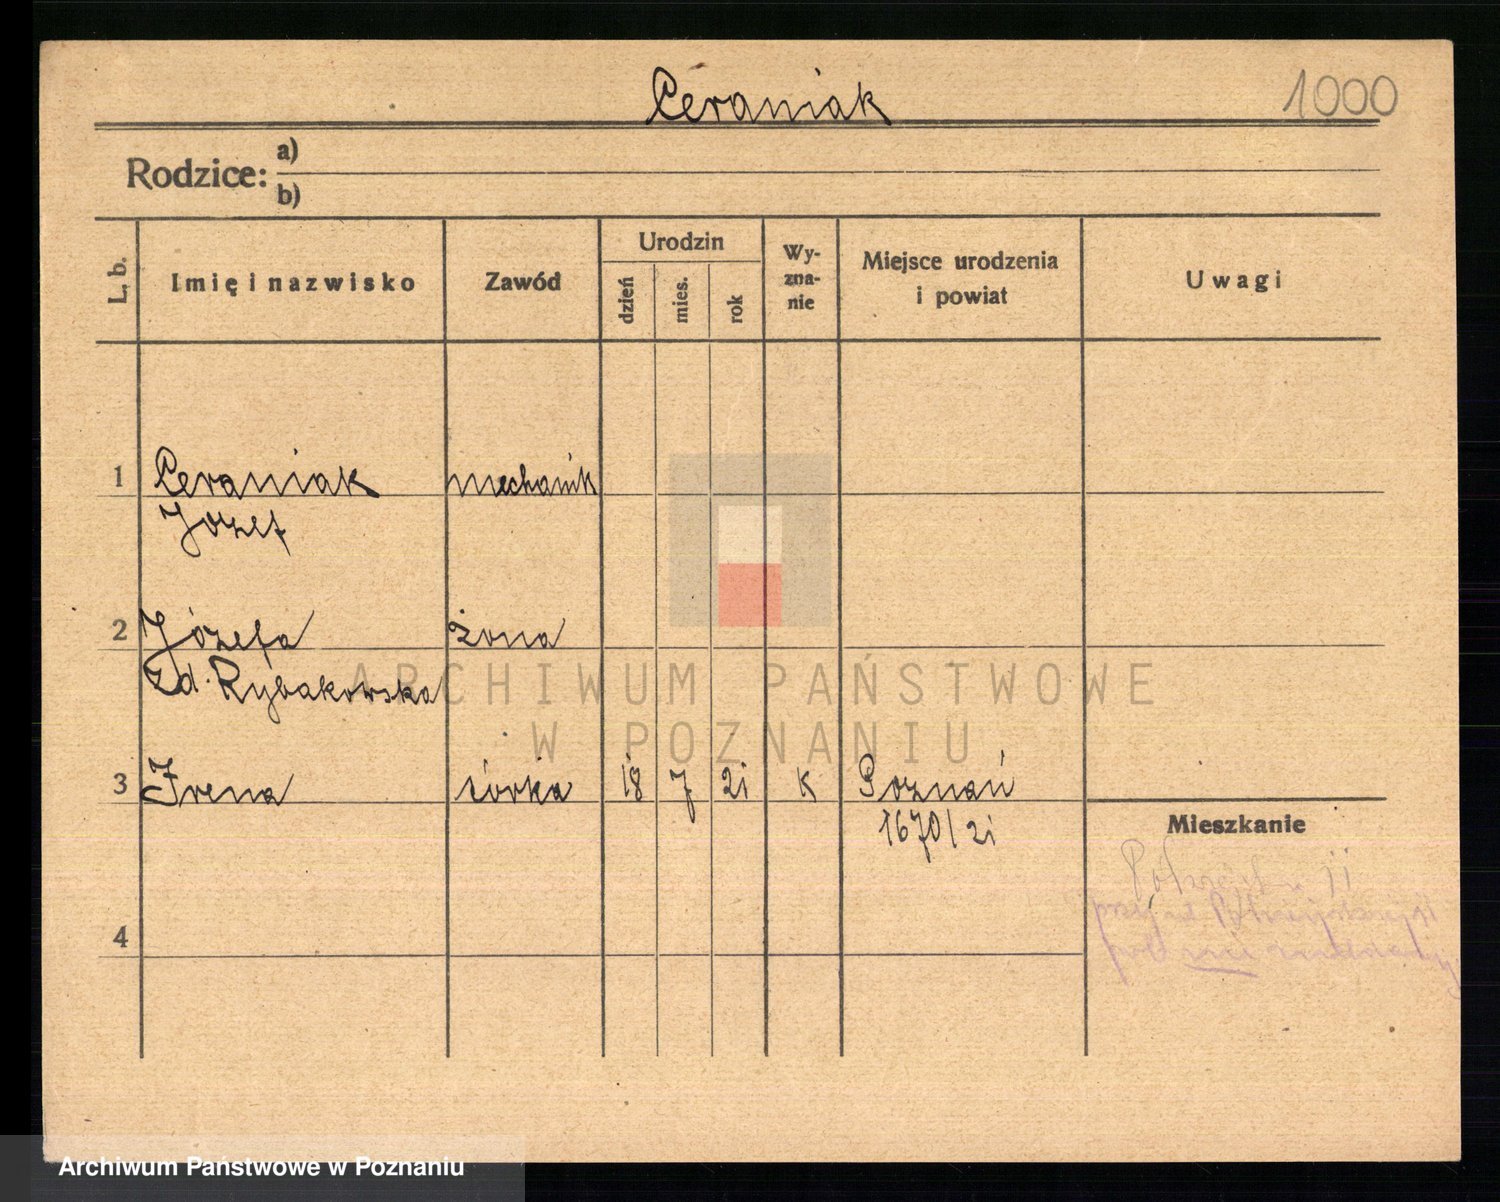 Ceraniak
1000
Rodzice: a)
b)
L. b.
Imię i nazwisko
Zawód
Urodzin
dzień
mies.
rok
Wy-
zna-
nie
Miejsce urodzenia
i powiat
Uwagi
1 Ceraniak mechanik
Józef
2 Józefa żona
zd. Rybakowska
ARCHIWUM PAŃSTWOWE
W POZNANIU
3 Irena córka 18 7 21 K Poznań
1670/21
Mieszkanie
4
Archiwum Państwowe w Poznaniu